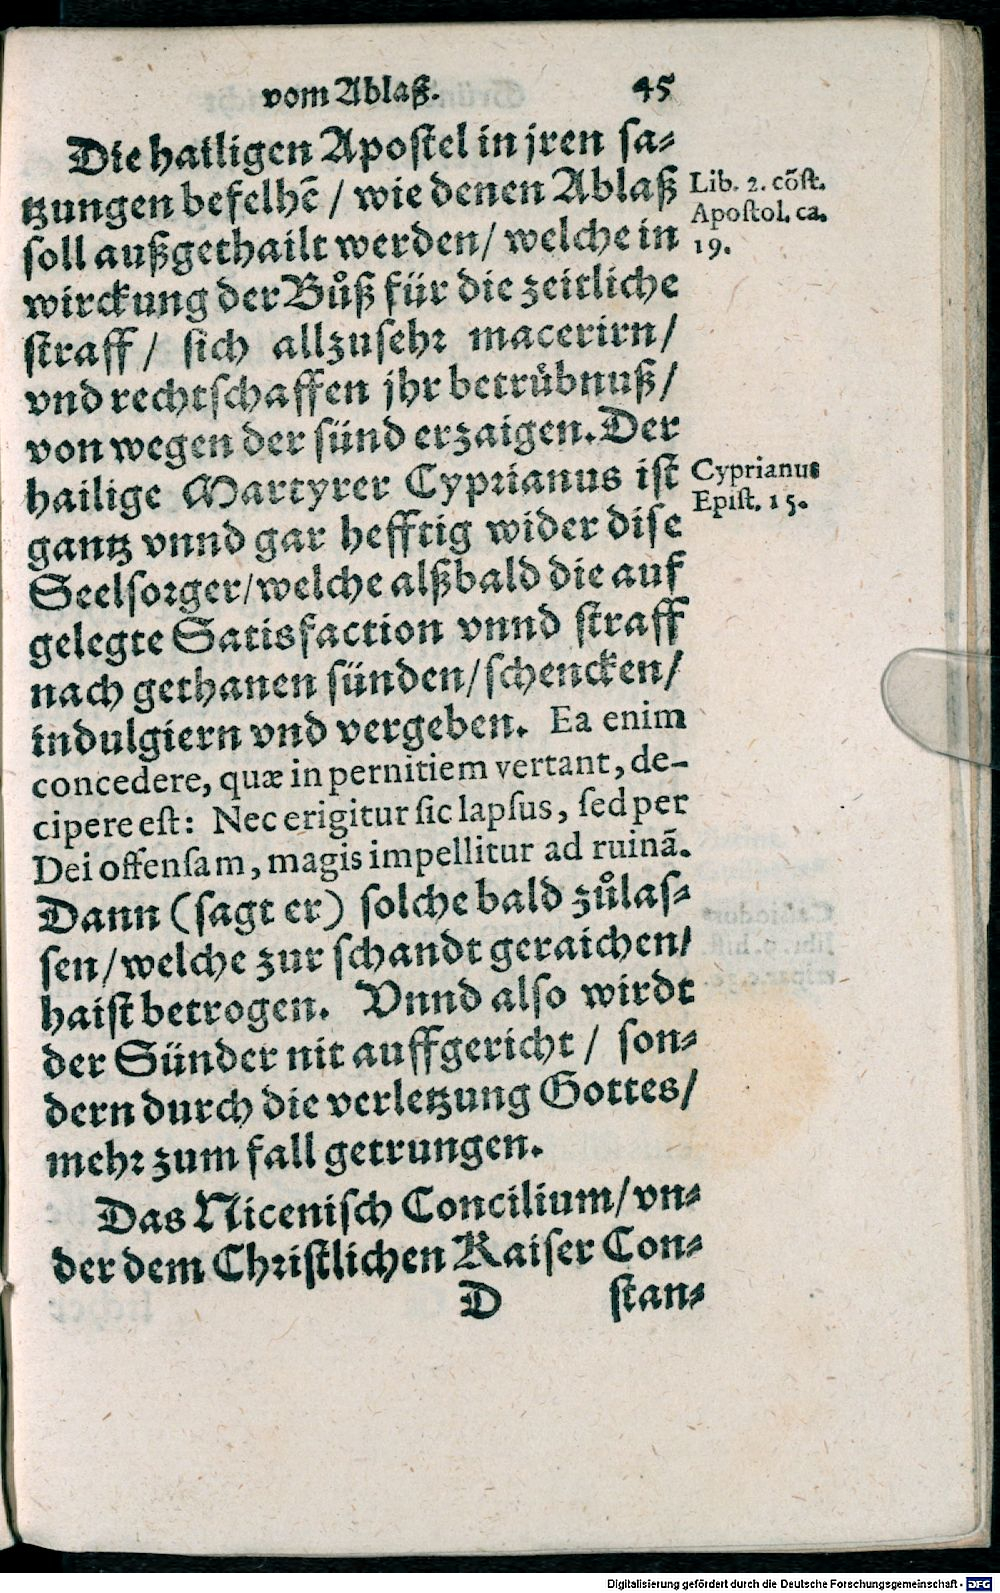 vom Ablaß. 45
Die hailigen Apostel in jren sa-
tzungen befelhē / wie denen Ablaß
soll außgethailt werden / welche in
wirckung der Bůß für die zeitliche
straff / sich allzusehr macerirn /
vnd rechtschaffen jhr betrübnuß /
von wegen der sünd erzaigen. Der
hailige Martyrer Cyprianus ist
gantz vnnd gar hefftig wider dise
Seelsorger / welche alßbald die auf
gelegte Satisfaction vnnd straff
nach gethanen sünden / schencken /
indulgiern vnd vergeben. Ea enim
concedere, quæ in pernitiem vertant, de-
cipere est: Nec erigitur sic lapsus, sed per
Dei offensam, magis impellitur ad ruinā.
Dann (sagt er) solche bald zůlas-
sen / welche zur schandt geraichen /
haist betrogen. Vnnd also wirdt
der Sünder nit auffgericht / son-
dern durch die verletzung Gottes /
mehr zum fall getrungen.
Das Nicenisch Concilium / vn-
der dem Christlichen Kaiser Con-
D stan-
Lib. 2. cōst.
Apostol. ca.
19.
Cyprianus
Epist. 15.
Digitalisierung gefördert durch die Deutsche Forschungsgemeinschaft - DFG